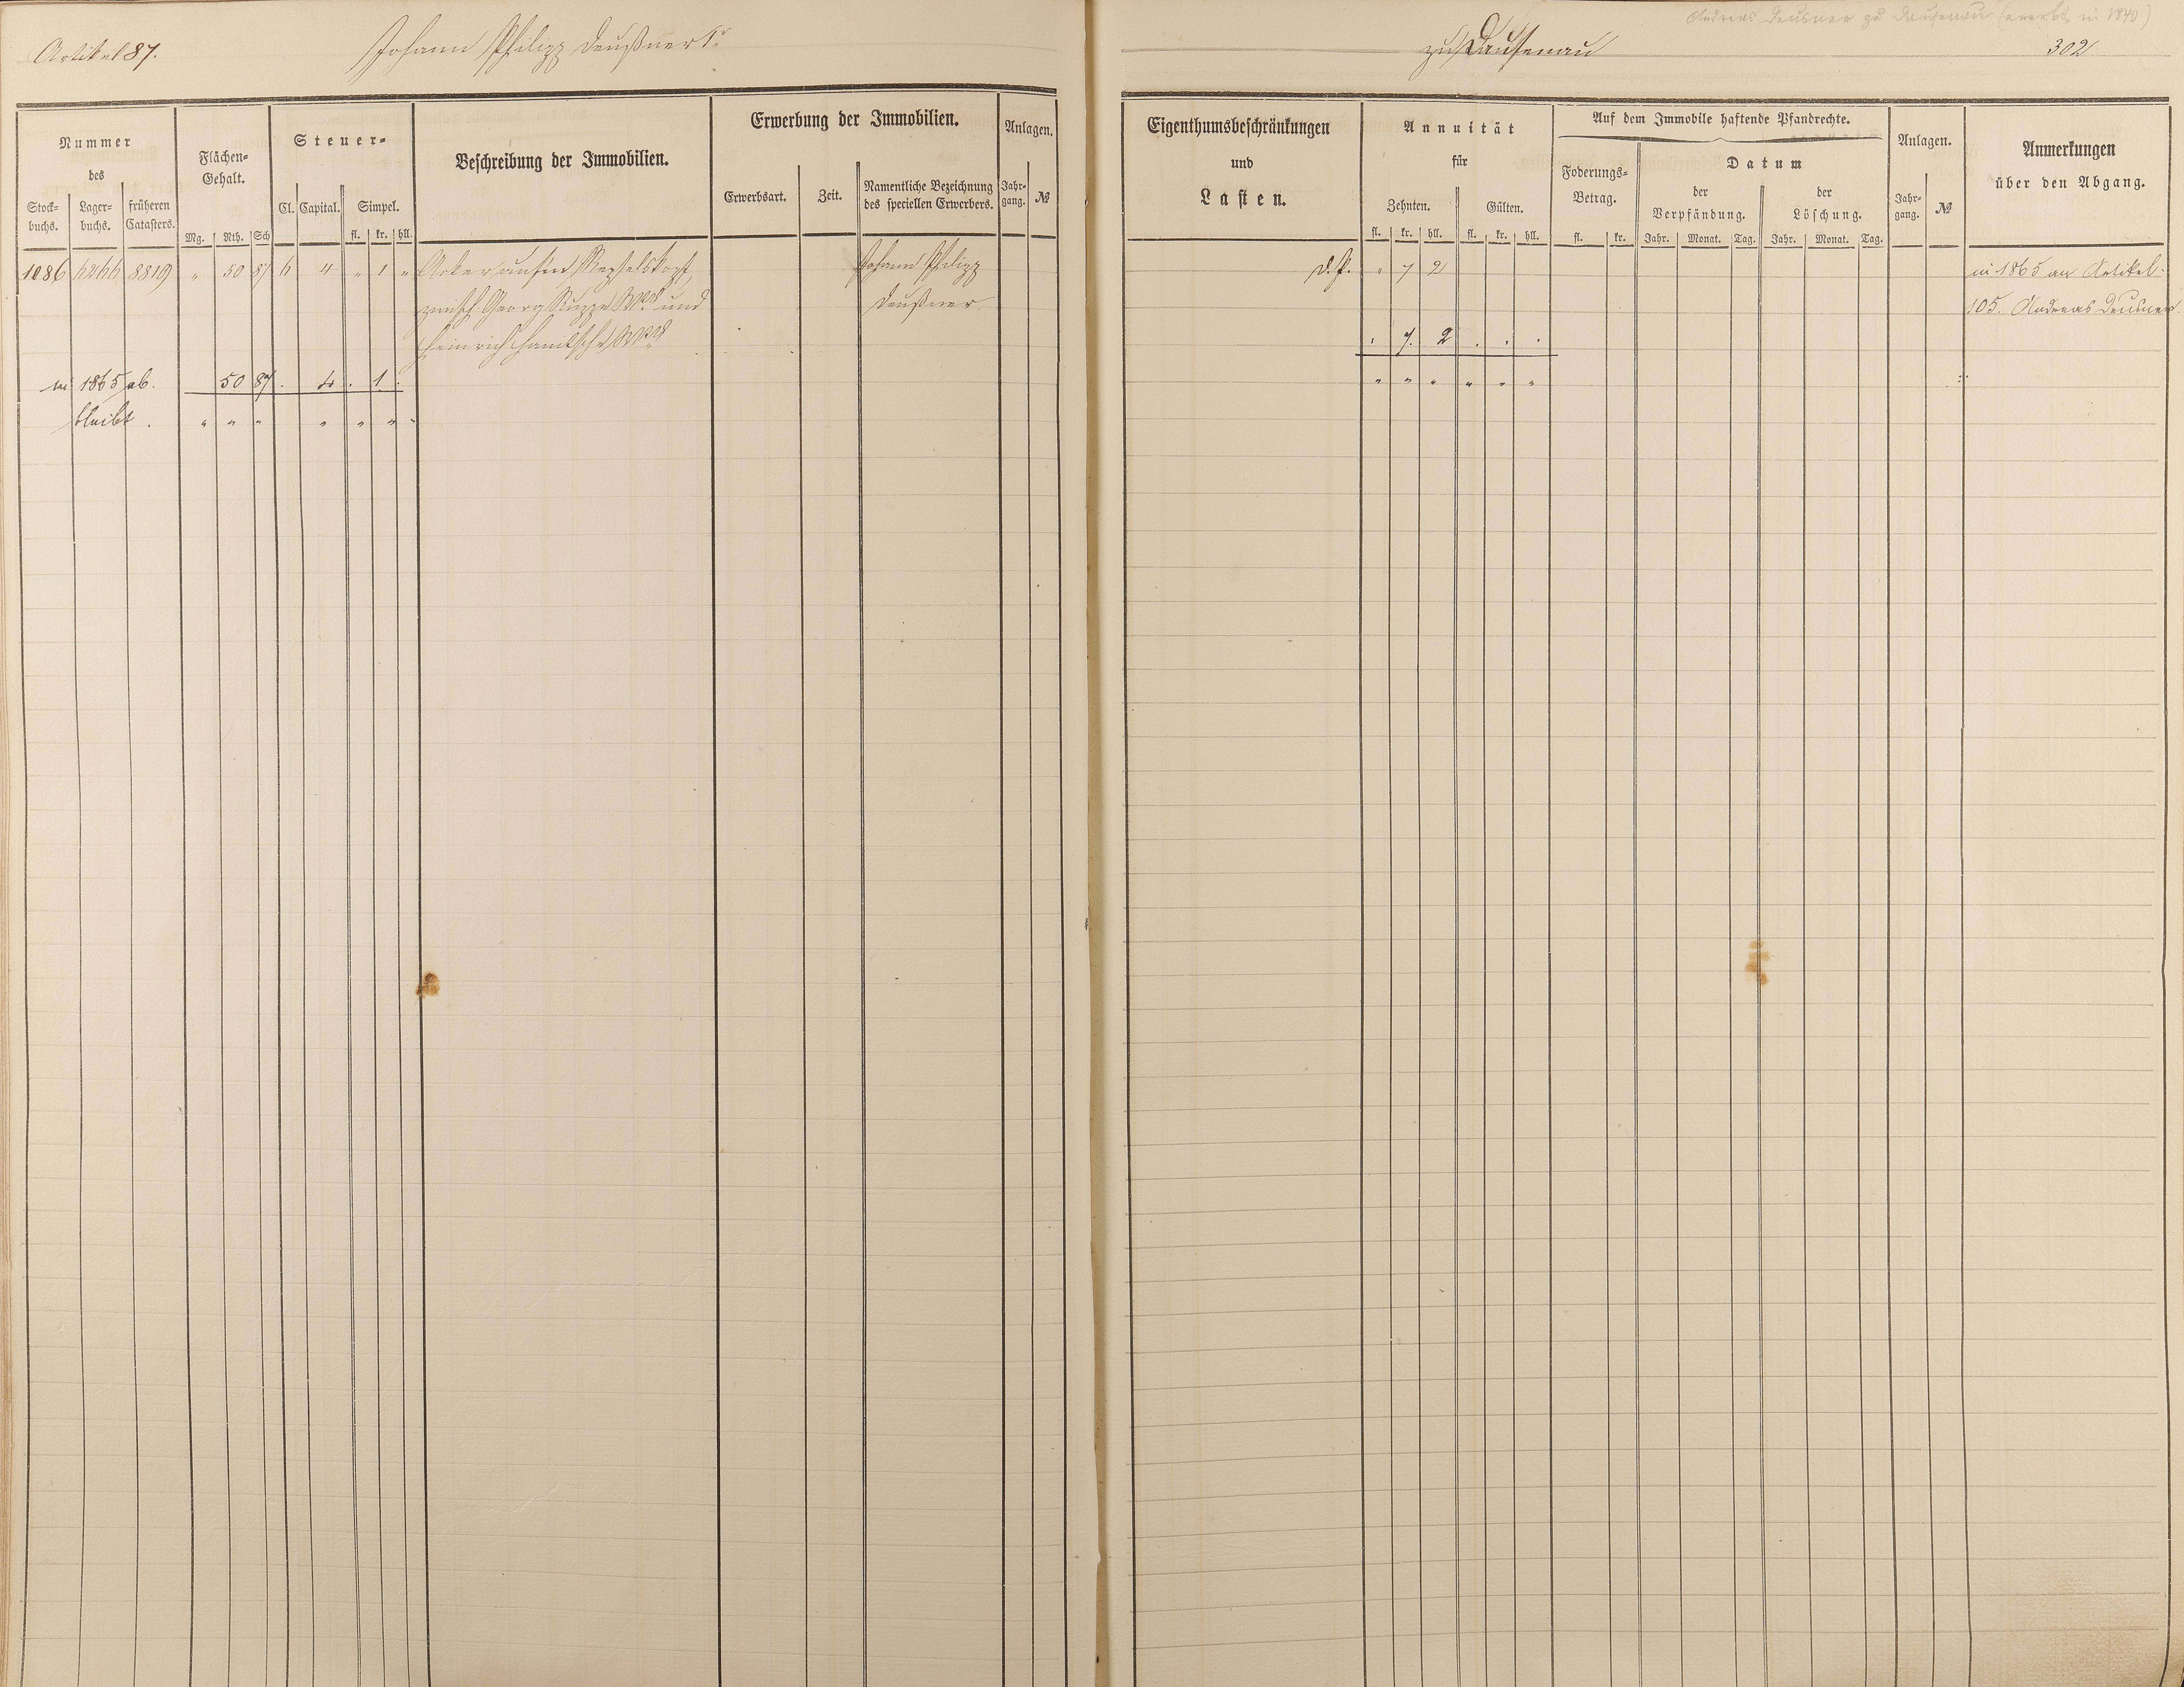 Artikel 87.
Johann Philipp Deußner 1r
Andreas Deusner zu Dausenau (ererbt in 1840)
zu Dausenau
302
Nummer
des
Stock-
buchs.
Lager-
buchs.
früheren
Catasters.
Flächen-
Gehalt.
Mg. Rth. Sch
Steuer-
Cl. Capital. Simpel.
fl. kr. hll.
Beschreibung der Immobilien.
Erwerbung der Immobilien.
Erwerbsart. Zeit.
Namentliche Bezeichnung
des speciellen Erwerbers.
Anlagen.
Jahr-
gang.
№
Eigenthumsbeschränkungen
und
Lasten.
Annuität
für
Zehnten. Gülten.
fl. kr. hll. fl. kr. hll.
Auf dem Immobile haftende Pfandrechte.
Foderungs-
Betrag.
fl. kr.
Datum
der
Verpfändung.
Jahr. Monat. Tag.
der
Löschung.
Jahr. Monat. Tag.
Anlagen.
Jahr-
gang.
№
Anmerkungen
über den Abgang.
1086 8819 " 50 87 4 " 1 " Acker
Johann Philipp
" 7 2
in 1865 an Artikel
zwisch. Georg und
Deußner
105. Andreas Deusner.
Heinrich
. 7. 2 . . .
in 1865 ab. 50 87. 4 . 1 .
" " " " " "
bleibt . " " " " " " "